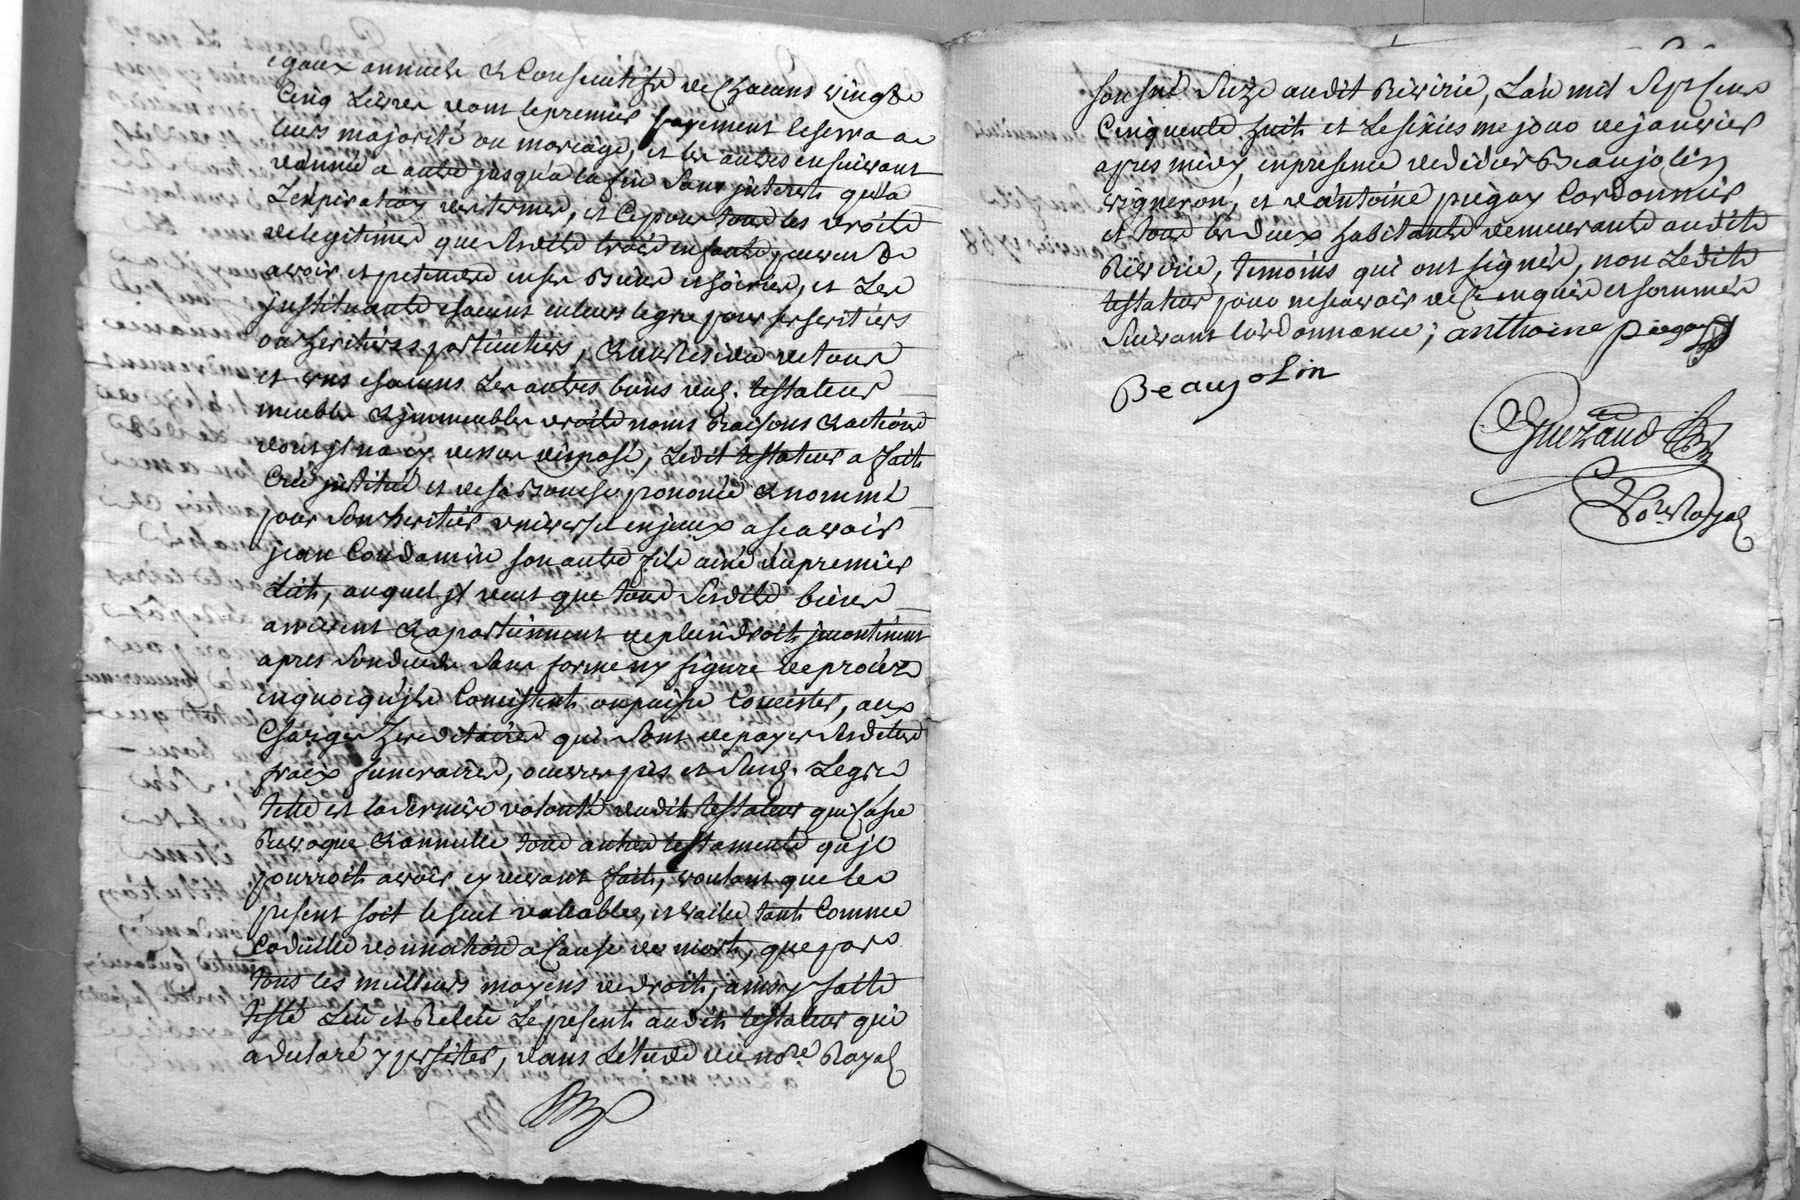 egaux annuels & consecutifs de chacuns vingt
Cinq Livres dont le premier payement le ferra a
leurs majorité ou mariage, et les autres ensuivant
d'année a autre jusqu'a la fin sans interets qu'a
L'expiration des termes, et ce pour tous les droits
de legitimes que lesdits trois enfants peuvent
avoir et pretendre en ses Biens et hoiries, et Les
instituants chacuns en leurs legts pour ses heritiers
ou heritieres particuliers, & au Residu de tous
et uns chacuns Les autres biens dud. testateur
meubles & immeubles droits noms Raisons & actions
dont il n'a cy dessus disposé, Ledit testateur a fait
Créé institué et de sa Bouche prononcé & nommé
pour son heritier universel en jceux ascavoir
jean Condamin son autre fils ainé du premier
Lict, auquel jl veut que tous sesdits biens
arrivent & apartiennent de plein droit jncontinent
apres son deceds sans forme ny figure de procès
en quoi qu'ils Consistent ou puisse Consister, aux
Charges hereditaires qui sont de payer sesdettes
fraix funeraires, œuvres pies et susd. Legts
telle est la derniere volonté dudit testateur qui Casse
Revoque & annulle tous autres testaments qu'jl
pourroit avoir cy devant fait, voulant que le
present soit le seul vallable, et vaille tant Comme
Codicille donnation a Cause de mort, que par
tous les meilleurs moyens de droit, ainsy fait
testé Lu et Relu Le present audit testateur qui
a declaré y persister, dans L'étude du nore Royal
sousné Rieze audit Riverie, L'an mil sept cent
Cinquante huit et Le sixiesme jour de janvier
apres midy, en presence de didier Beaujolin
vigneron, et d'antoine piegay Cordonnier
et tous les deux habitants demeurants audit
Riverie, temoins qui ont signés, non Ledit
testateur pour ne scavoir de ce enquis et sommés
suivant l'ordonnance; anthoine piegay
Beaujolin
Gueraud
Nore Royal